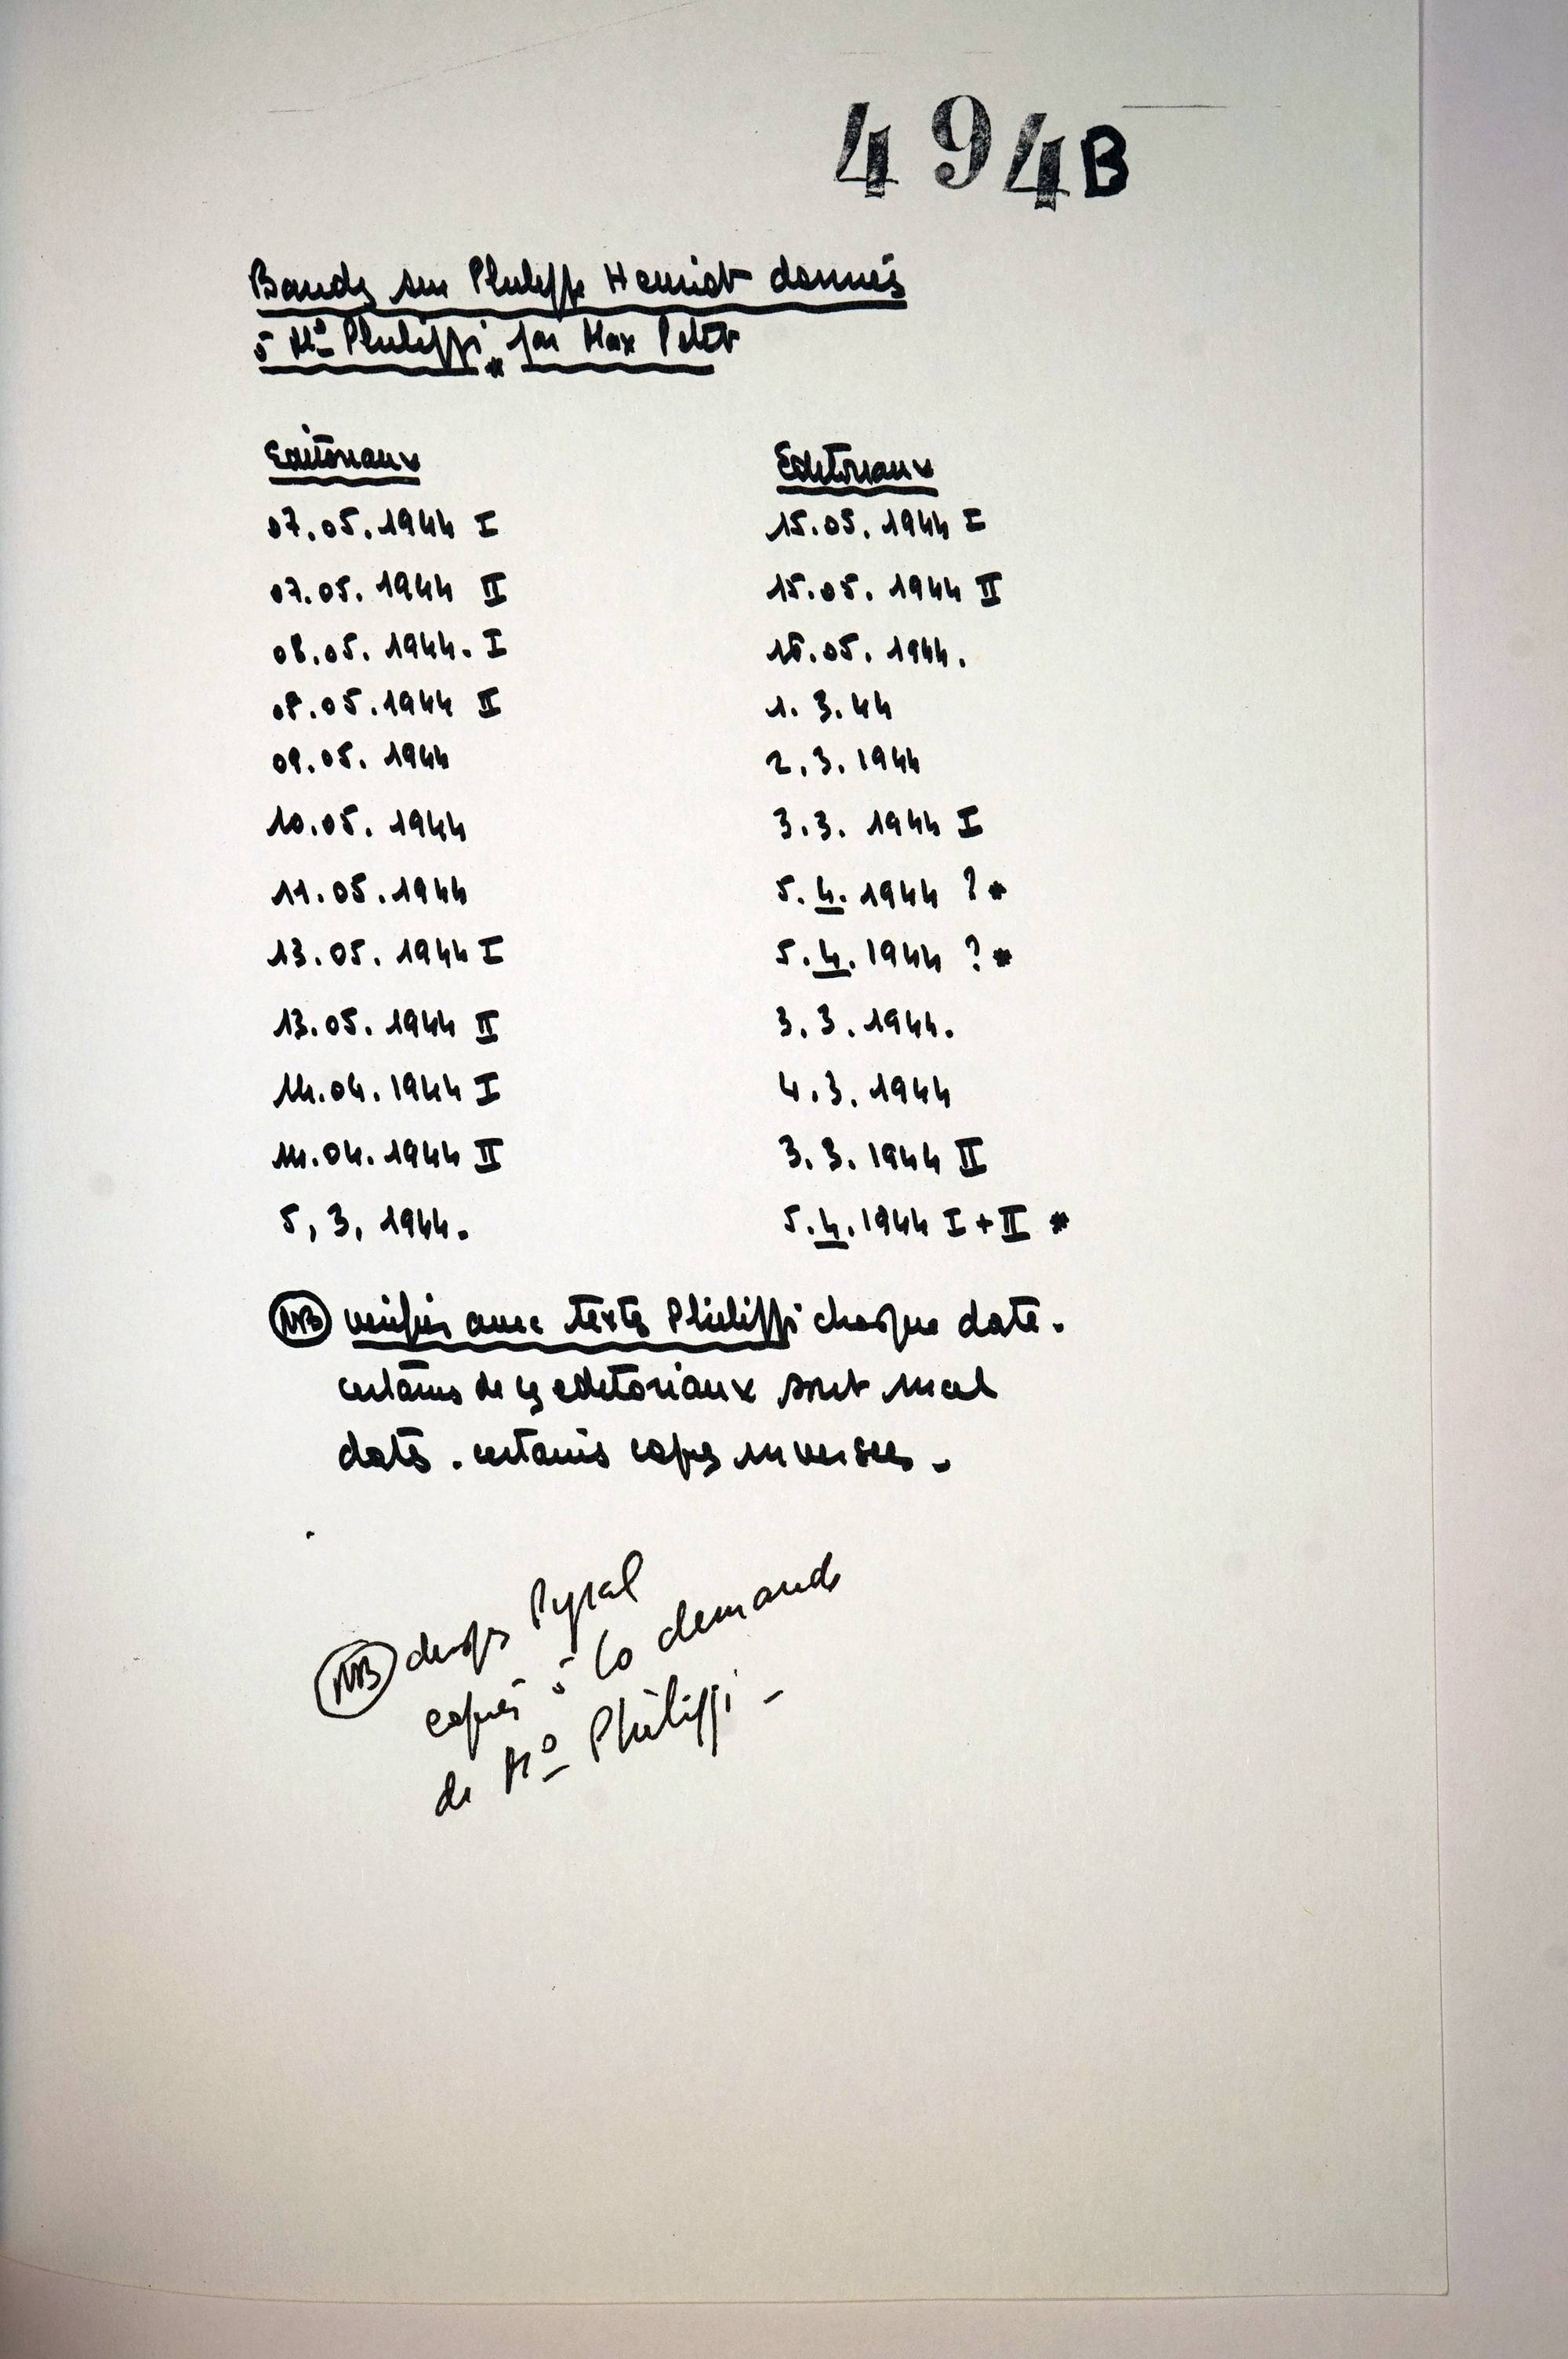 494B
Bandes sur Philippe Henriot donnés
à Mº Philippi * par Max Petit
Editoriaux
07.05.1944 I
07.05.1944 II
08.05.1944. I
08.05.1944 II
09.05.1944
10.05.1944
11.05.1944
13.05.1944 I
13.05.1944 II
14.04.1944 I
14.04.1944 II
5,3,1944.
Editoriaux
15.05.1944 I
15.05.1944 II
.05.1944.
1.3.44
2.3.1944
3.3.1944 I
5.4.1944 ? *
5.4.1944 ? *
3.3.1944.
4.3.1944
3.3.1944 II
5.4.1944 I + II *
NB verifier avec texte Philippi chaque date.
certains de ces editoriaux sont mal
datés. certains copies inversées -
NB disques Pyral
copiés à la demande
de Mº Philippi -